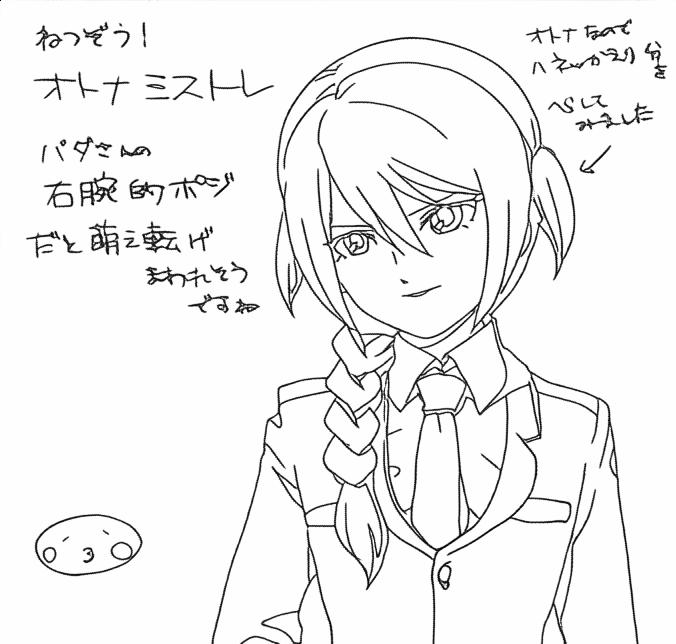 ねつぞう!
オトナ ミストレ
パダさんの
右腕的ポジ
だと萌え転げ
まわれそう
ですね
オトナなので
ハネっかえり分を
へらして
みました